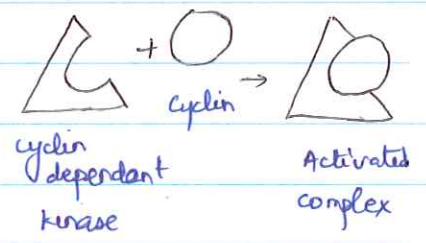 + →
cyclin
cyclin
dependant
kinase
Activated
complex